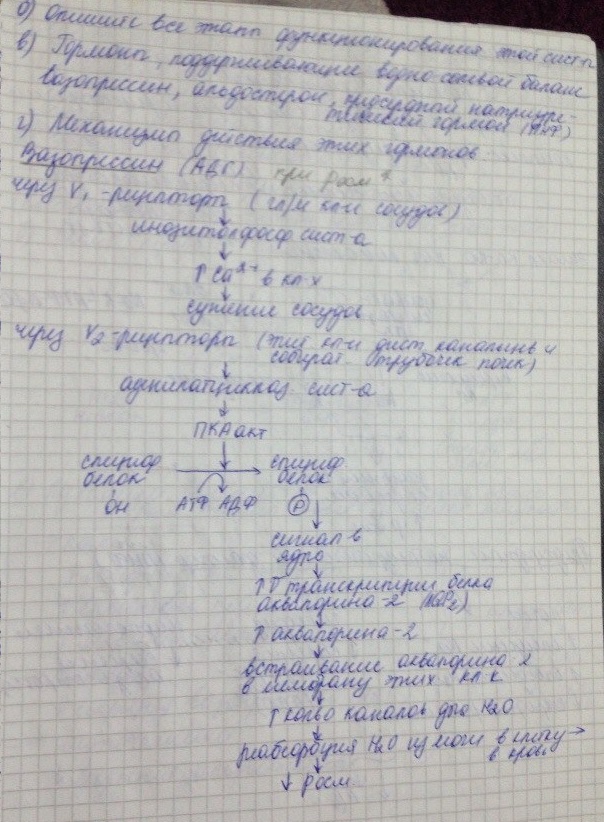 б) Опишите все этапы функционирования этой сист-ы
в) Гормоны, поддерживающие водно-солевой баланс
вазопрессин, альдостерон, предсердный натрийуре-
тический гормон (ПНФ)
г) Механизмы действия этих гормонов
Вазопрессин (АДГ) при Pосм ↑
через V₁-рецепторы (гл/м кл-и сосудов)
↓
инозитолфосф сист-а
↓
↑Ca²⁺ в кл-х
↓
сужение сосудов
через V₂-рецепторы (эпит кл-и дист канальцев и
собират трубочек почек)
↓
аденилатциклаз. сист-а
↓
ПКА акт
↓
специф белок → специф белок
OH АТФ АДФ Ⓟ
↓
сигнал в
ядро
↓
↑ транскрипции белка
аквапорина-2 (AQP2)
↓
↑ аквапорина-2
↓
встраивание аквапорина-2
в мембрану этих кл-к
↓
↑ кол-во каналов для H₂O
↓
реабсорбция H₂O из мочи в клетку →
в кровь
↓
↓ Pосм